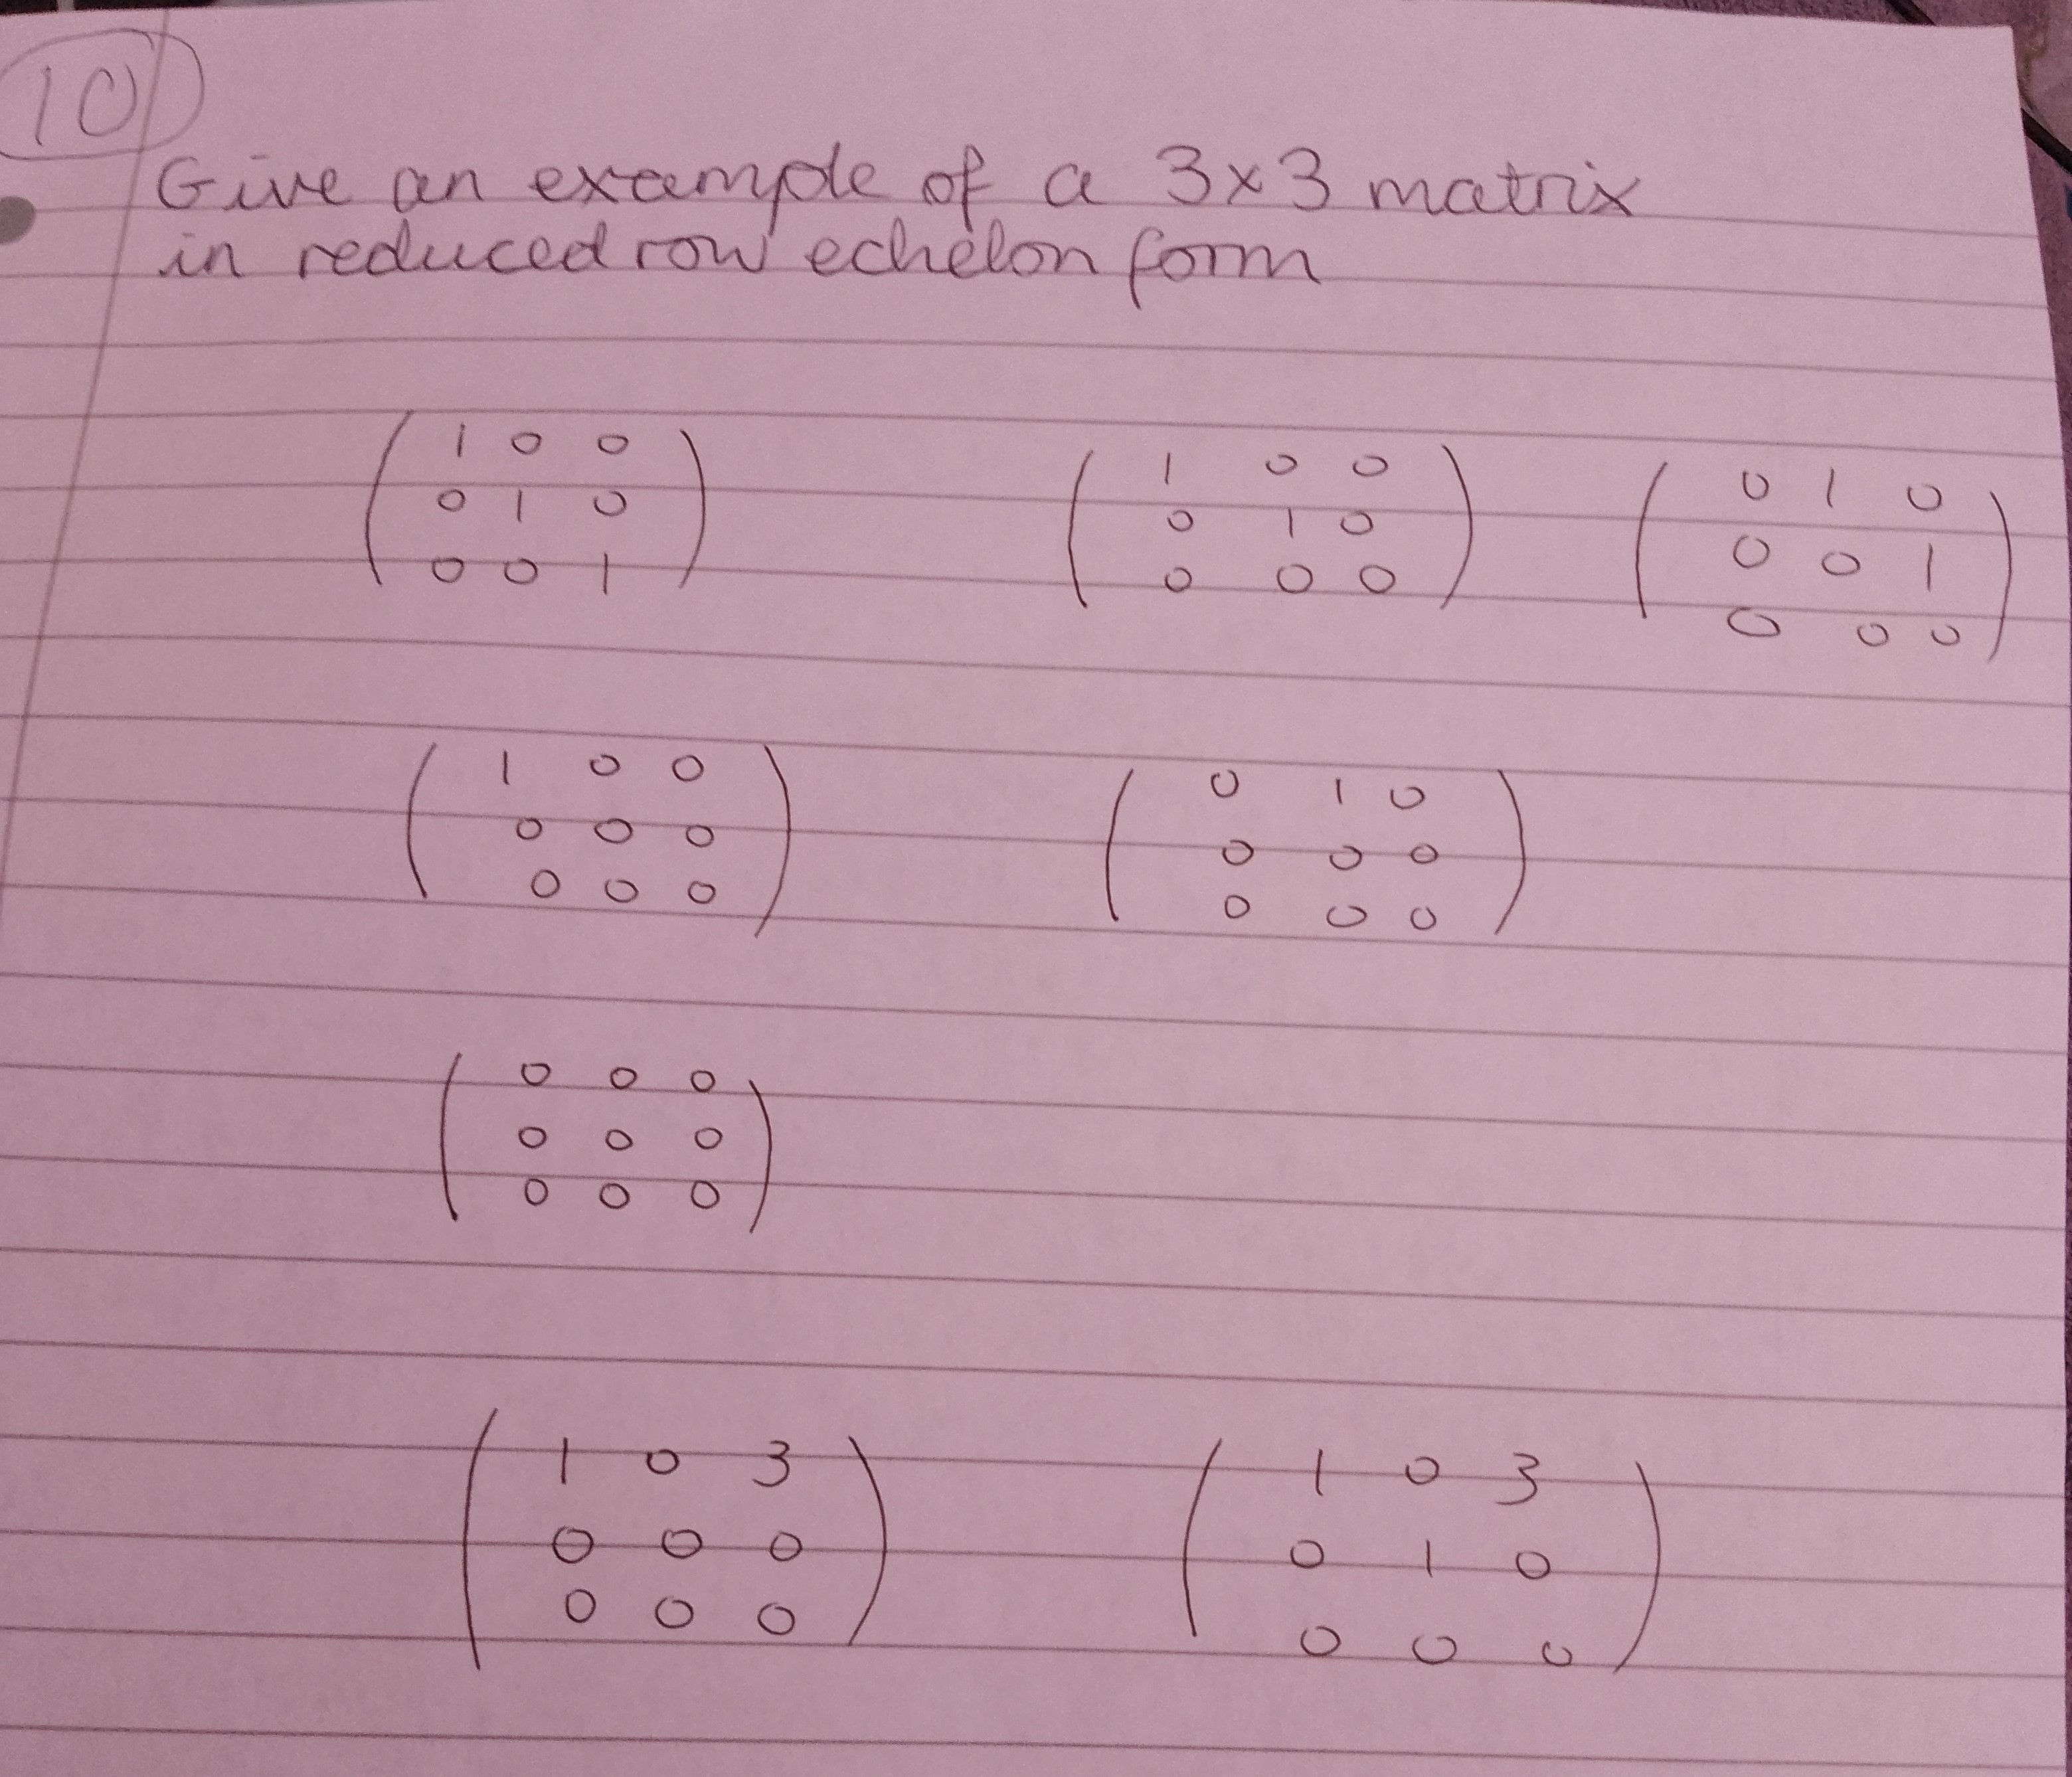 10
Give an example of a 3x3 matrix
in reduced row echelon form
1 0 0    1 0 0    0 1 0
0 1 0    0 1 0    0 0 1
0 0 1    0 0 0    0 0 0
1 0 0    0 1 0
0 0 0    0 0 0
0 0 0    0 0 0
0 0 0
0 0 0
0 0 0
1 0 3    1 0 3
0 0 0    0 1 0
0 0 0    0 0 0